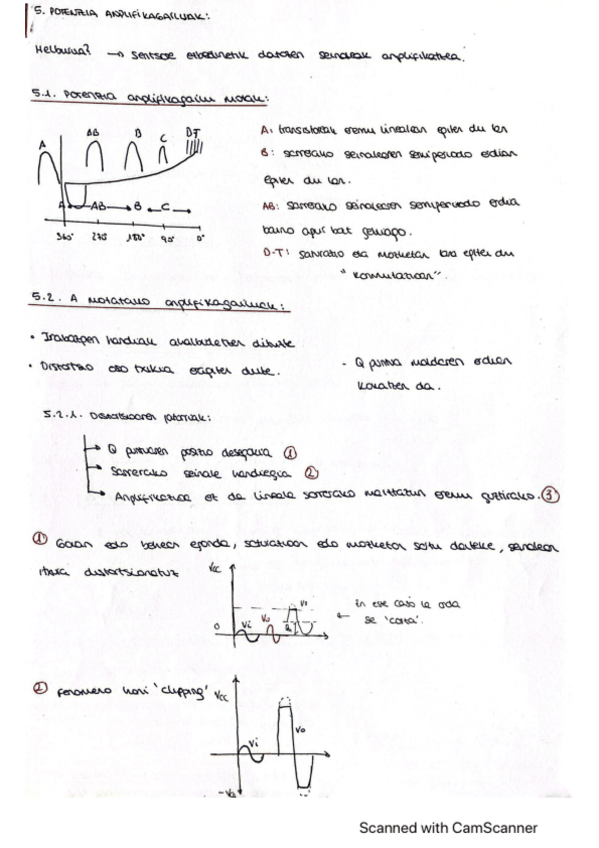 5. POTENTZIA ANPLIFIKAGAILUAK:
Helburua? → sentsore elbarrietatik datozen seinaleak anplifikatzea.
5.1. Potentzia anplifikagailu motak:
A AB B C D-T
A: transistoreak eremu linealean egiten du lan
B: sarrerako seinalearen semiperiodo erdian
egiten du lan.
AB: sarrerako seinalearen semiperiodo erdia
baino apur bat gehiago.
D-T: saturatio eta mozketan lana egiten du
"konmutatioan".
A AB → B C →
360° 270° 180° 90° 0°
5.2. A motatako anplifikagailuak:
• Irabazpen handiak ahalbidetzen dituzte
• Distortsio oso txikia eragiten dute.
- Q puntua maldaren erdian
kokatzen da.
5.2.1. Distortsioaren jatorriak:
→ Q puntuaren positio desegokia ①
→ Sarrerako seinale handiegia ②
→ Anplifikatzea ez da lineala sarrerako eremu guztirako. ③
① Goian edo behean egonda, saturatioan edo mozketan sartu daiteke, seinalearen
irteera distortsionatuz
Vcc
0 Vi Vo Q Vo
← En ese caso la onda
se 'corta'.
② Fenomeno hori 'clipping'
Vcc
Vi Vo
Scanned with CamScanner